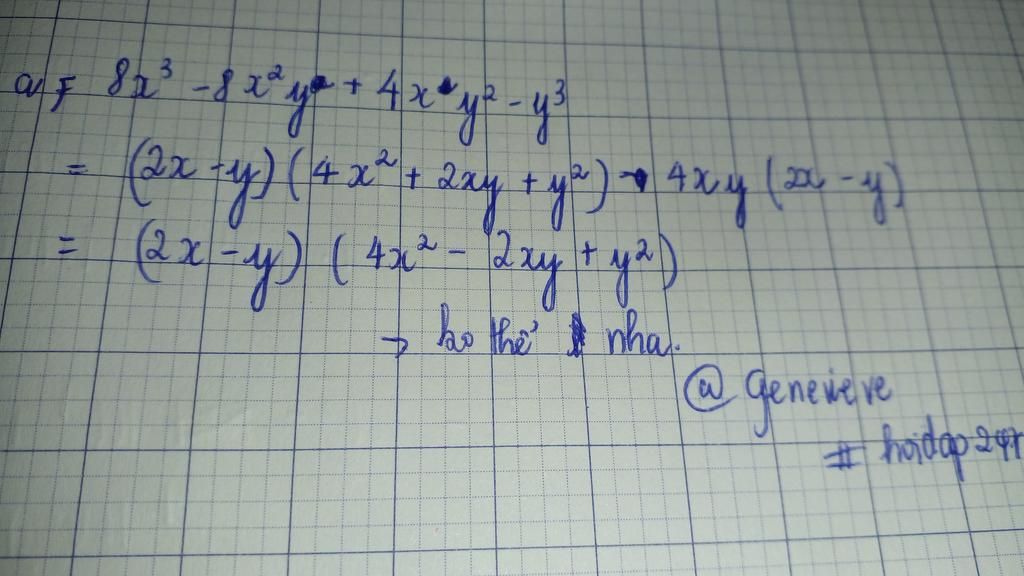 a, = 8x³ - 8x²y + 4xy² - y³
= (2x - y)(4x² + 2xy + y²) - 4xy (2x - y)
= (2x - y) (4x² - 2xy + y²)
→ ko thể nha.
@ Genevieve
# hoidap247